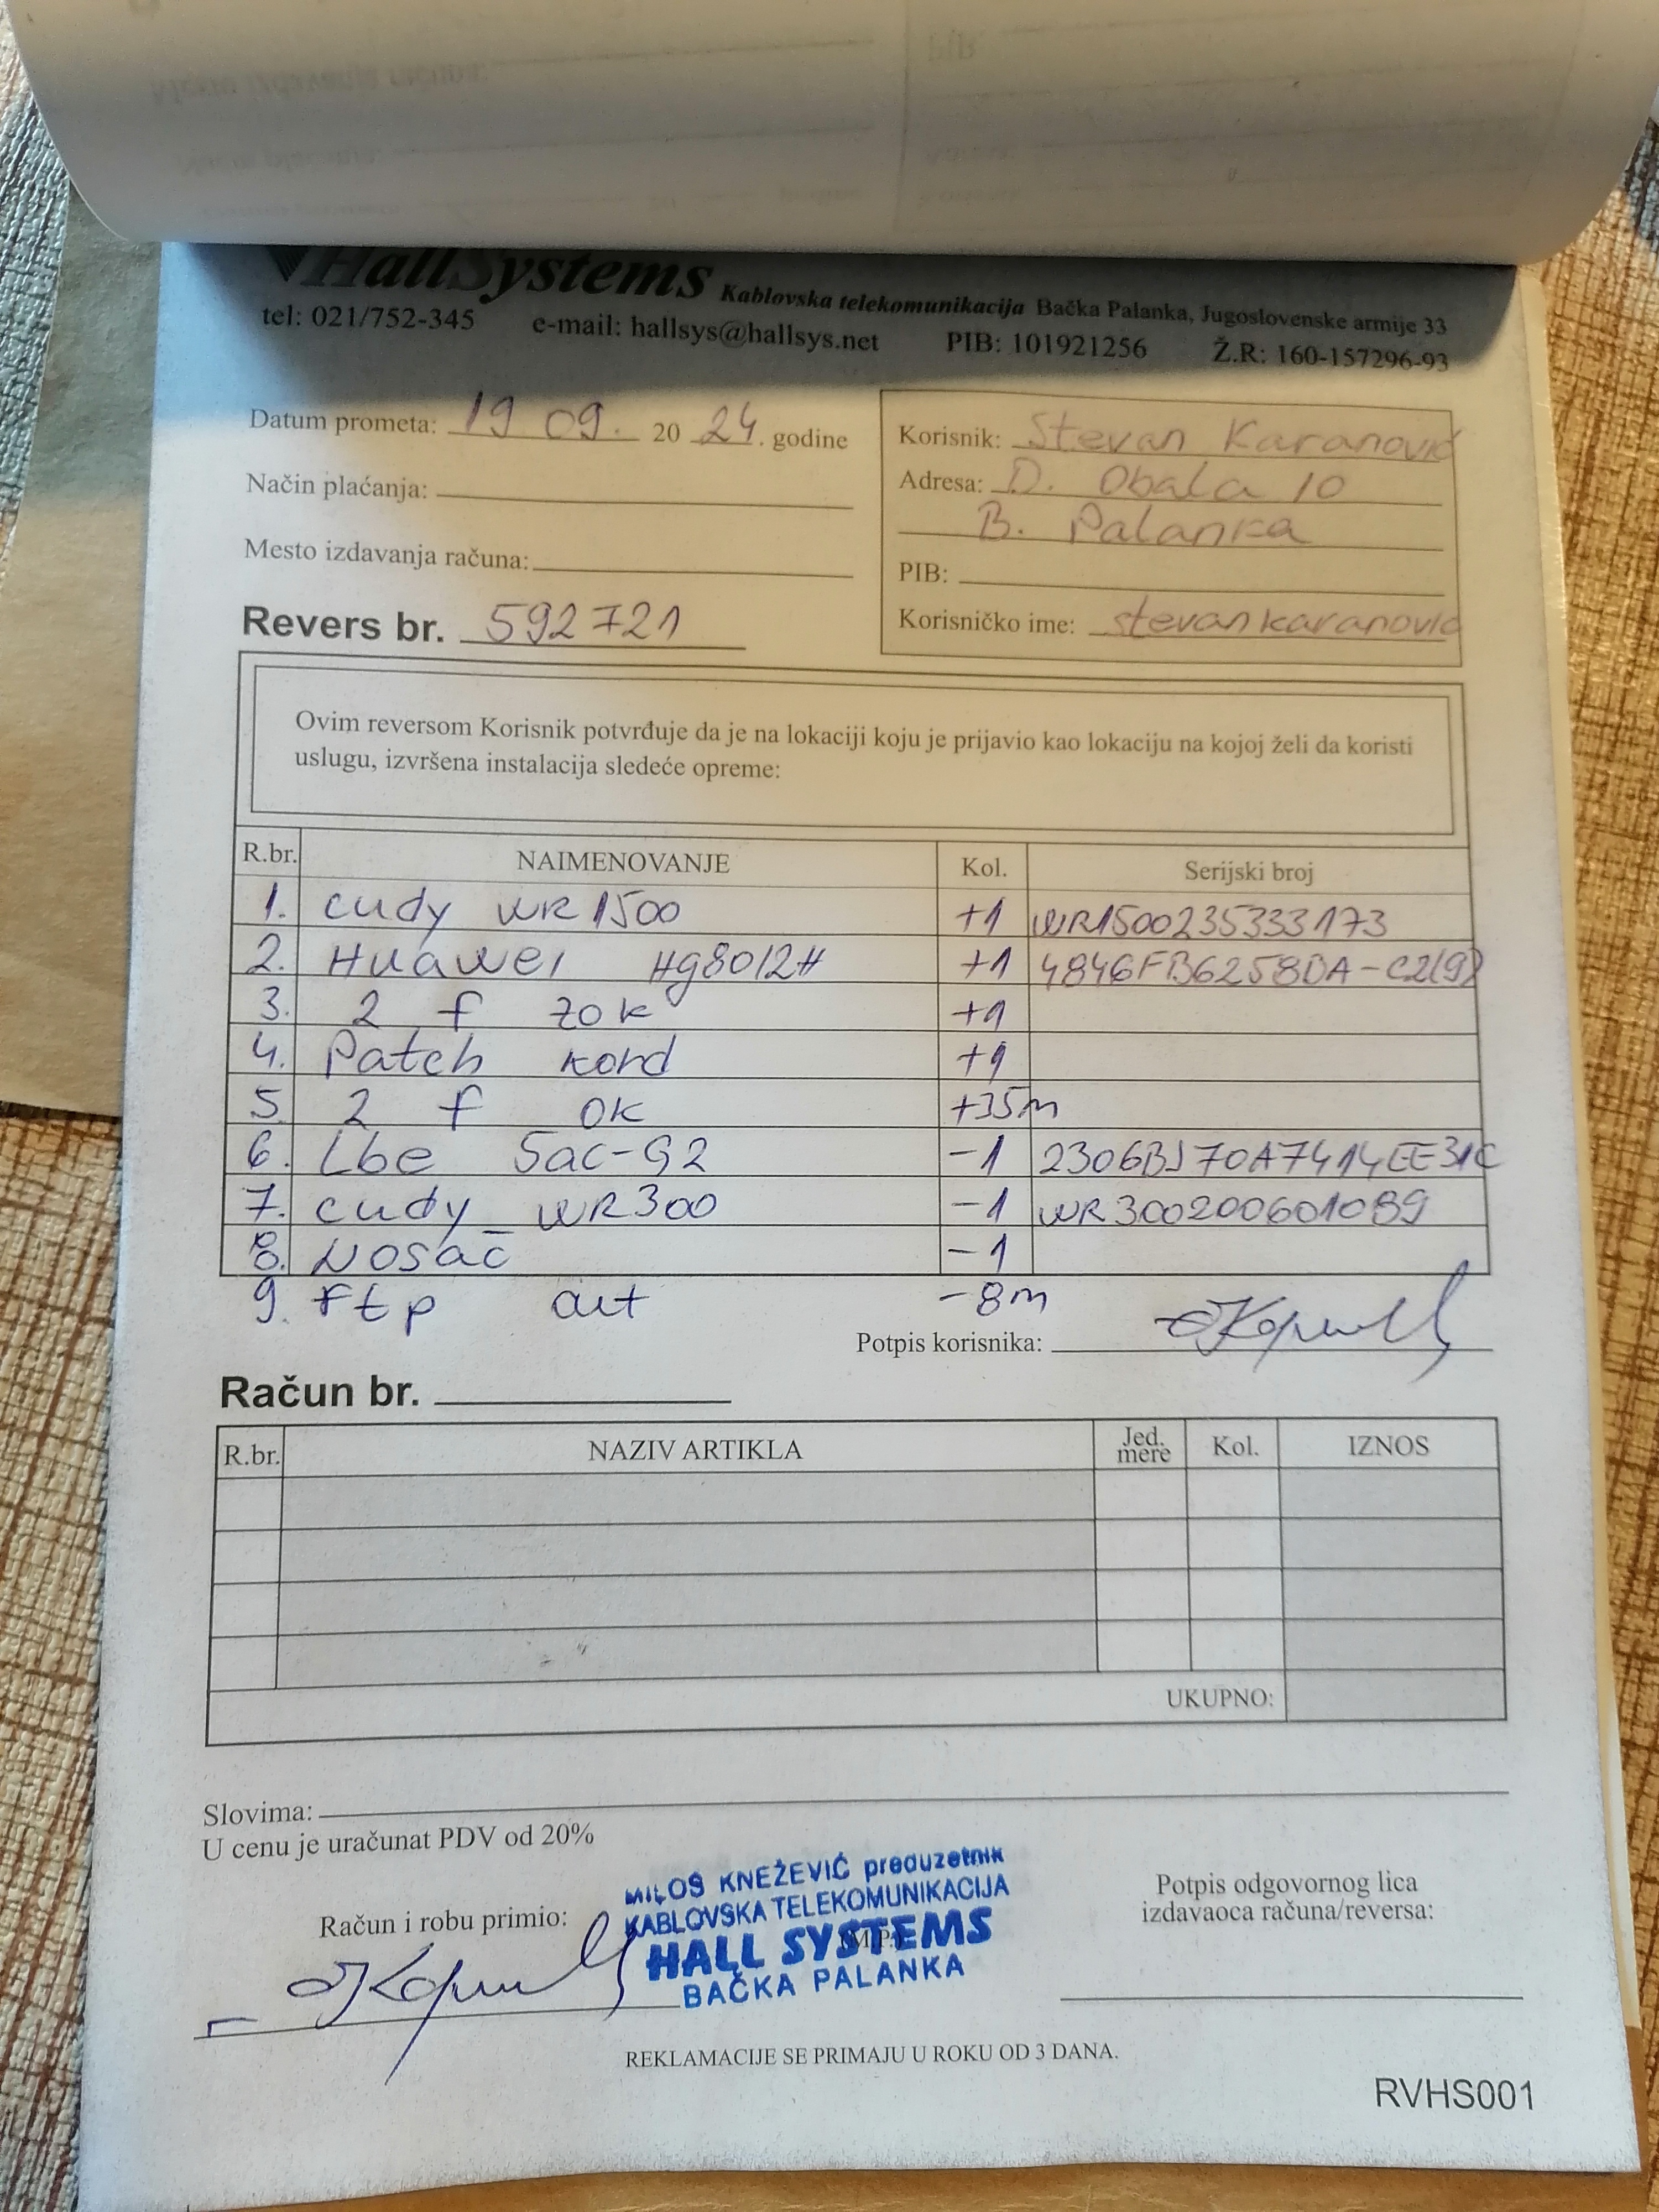 HallSystems Kablovska telekomunikacija Bačka Palanka, Jugoslovenske armije 33
tel: 021/752-345 e-mail: hallsys@hallsys.net PIB: 101921256 Ž.R: 160-157296-93
Datum prometa: 19 09. 20 24. godine
Način plaćanja:
Mesto izdavanja računa:
Korisnik: Stevan Karanović
Adresa: D. Obala 10
B. Palanka
PIB:
Korisničko ime: stevankaranovic
Revers br. 592721
Ovim reversom Korisnik potvrđuje da je na lokaciji koju je prijavio kao lokaciju na kojoj želi da koristi
uslugu, izvršena instalacija sledeće opreme:
R.br. NAIMENOVANJE Kol. Serijski broj
1. cudy WR1500 +1 WR1500235333173
2. Huawei Hg8012H +1 4846FB6258DA-C2(9)
3. 2 f zok +1
4. Patch kord +1
5. 2 f ok +35m
6. Lbe 5ac-G2 -1 2306BJ70A7414EE31C
7. cudy WR300 -1 WR300200601089
8. Nosač -1
9. Ftp out -8m
Potpis korisnika:
Račun br.
R.br. NAZIV ARTIKLA Jed. mere Kol. IZNOS
UKUPNO:
Slovima:
U cenu je uračunat PDV od 20%
Račun i robu primio:
MILOŠ KNEŽEVIĆ preduzetnik
KABLOVSKA TELEKOMUNIKACIJA
HALL SYSTEMS
BAČKA PALANKA
(M.P.)
Potpis odgovornog lica
izdavaoca računa/reversa:
REKLAMACIJE SE PRIMAJU U ROKU OD 3 DANA.
RVHS001